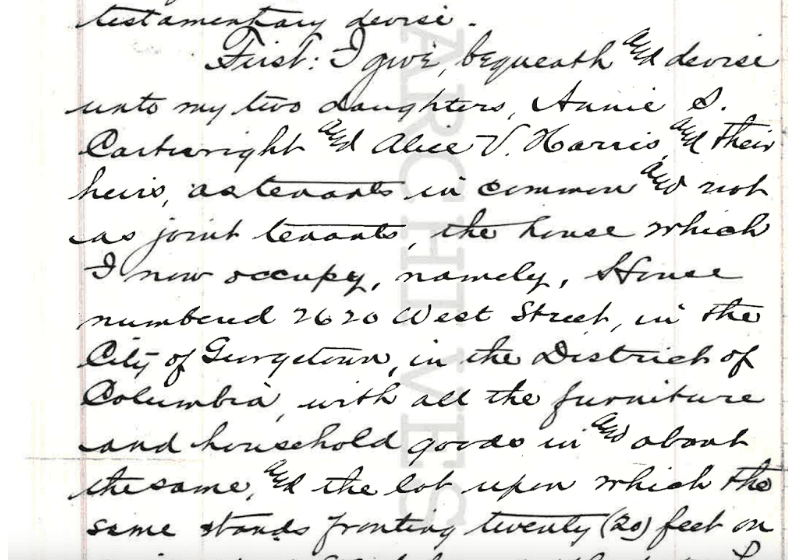 testamentary devise.
First: I give, bequeath and devise
unto my two daughters, Annie S.
Cartwright and Alice V. Harris, and their
heirs, as tenants in common and not
as joint tenants, the house which
I now occupy, namely, House
numbered 2620 West Street, in the
City of Georgetown, in the District of
Columbia, with all the furniture
and household goods in and about
the same, and the lot upon which the
same stands fronting twenty (20) feet on
ARCHIVES